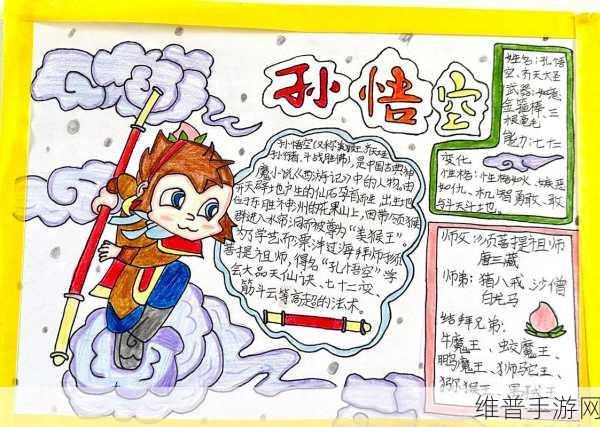 孙悟空
孙悟空(又称美猴王、齐天大圣
孙行者、斗战胜佛),是中国古典神
魔小说《西游记》中的人物。由
开天辟地产生的仙石孕育而生,出生地
位于东胜神洲的花果山上,因带领猴
群进入水帘洞而被尊为“美猴王”。
为了学艺而漂洋过海拜师于须
菩提祖师,得名“孔悟空”学
会大品天仙诀、七十二变、
筋斗云等高超的法术。
姓名:孔悟
空、齐天大圣
武器:如意
金箍棒、三
根毫毛
能力:七十二
变化
性格:性格如火、嫉恶
如仇、机智勇敢、敢
与天斗士也。
师父:须菩提祖师
唐三藏
师弟:猪八戒 沙僧
白龙马
结拜兄弟:
牛魔王、蛟魔王、
鹏魔王、狮驼王、
猕猴王、禺狨王
维普手游网